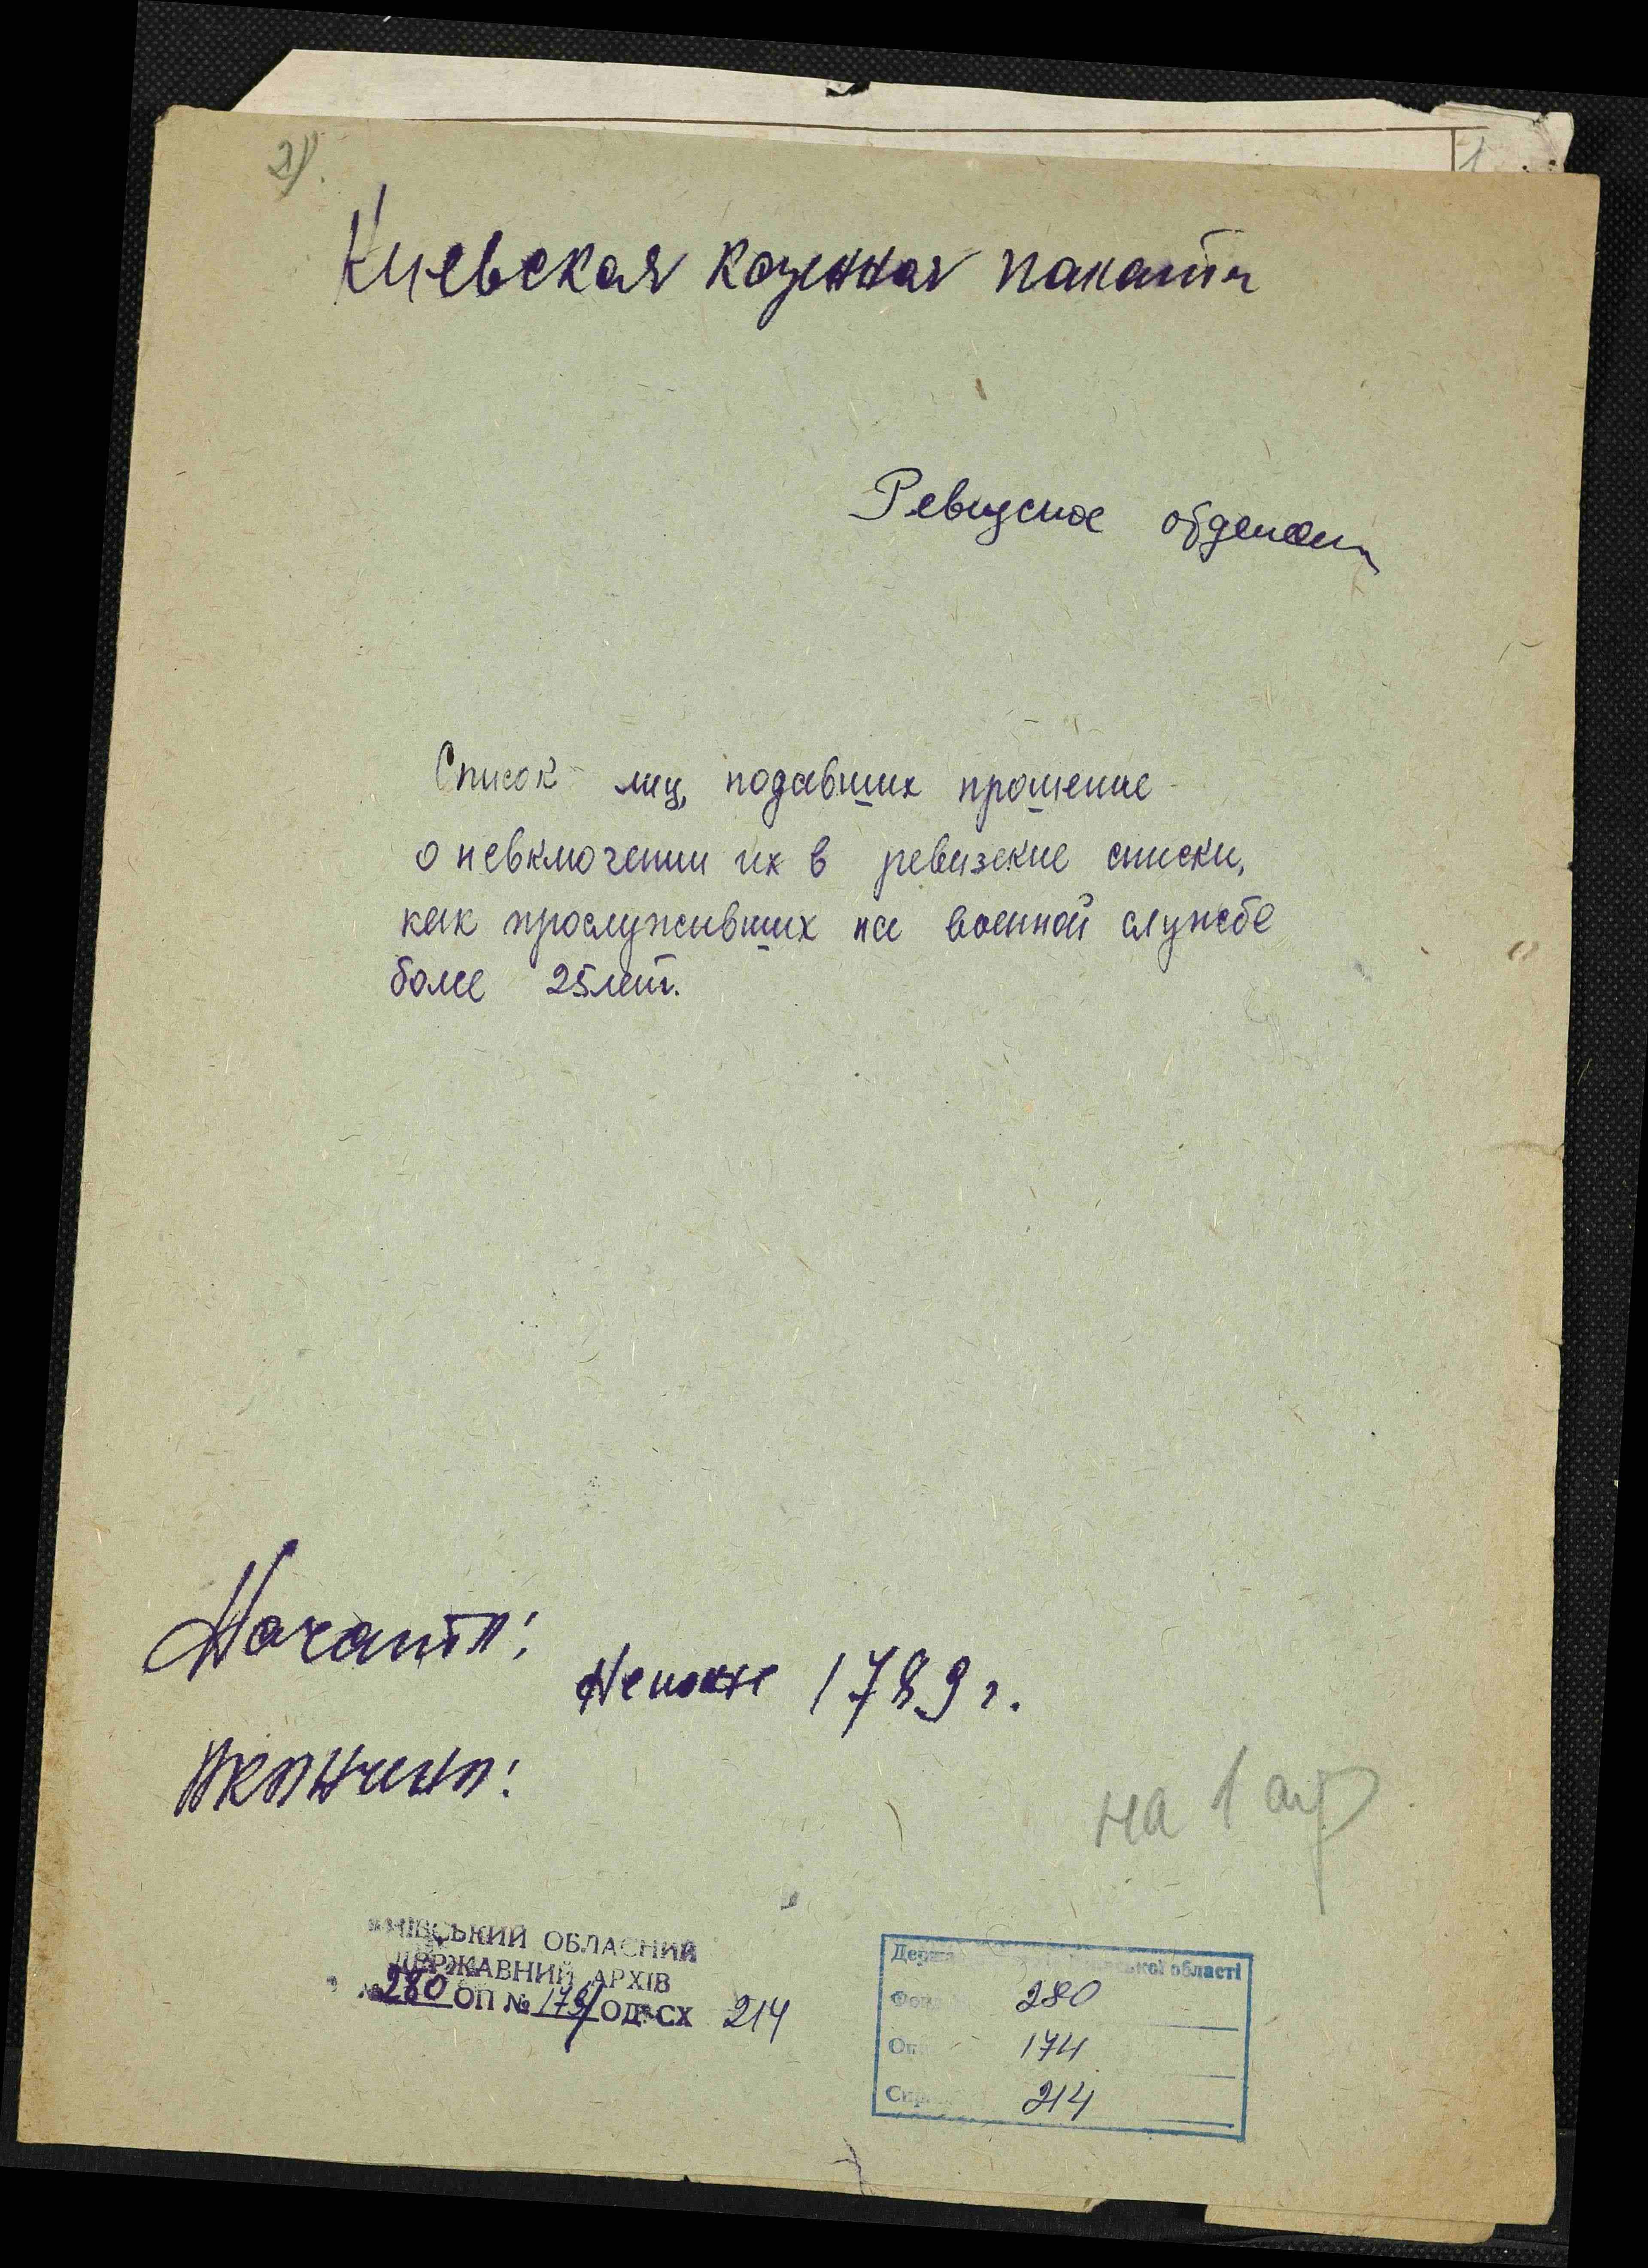 2).
1
Киевская казенная палата
Ревизское отделение
Список лиц, подавших прошение
о невключении их в ревизские списки,
как прослуживших на военной службе
более 25 лет.
Начато:
Не позже 1789 г.
Окончено:
на 1
КИЇВСЬКИЙ ОБЛАСНИЙ
ДЕРЖАВНИЙ АРХІВ
№ 280 ОП № 174 ОД. СХ 214
області
280
174
214